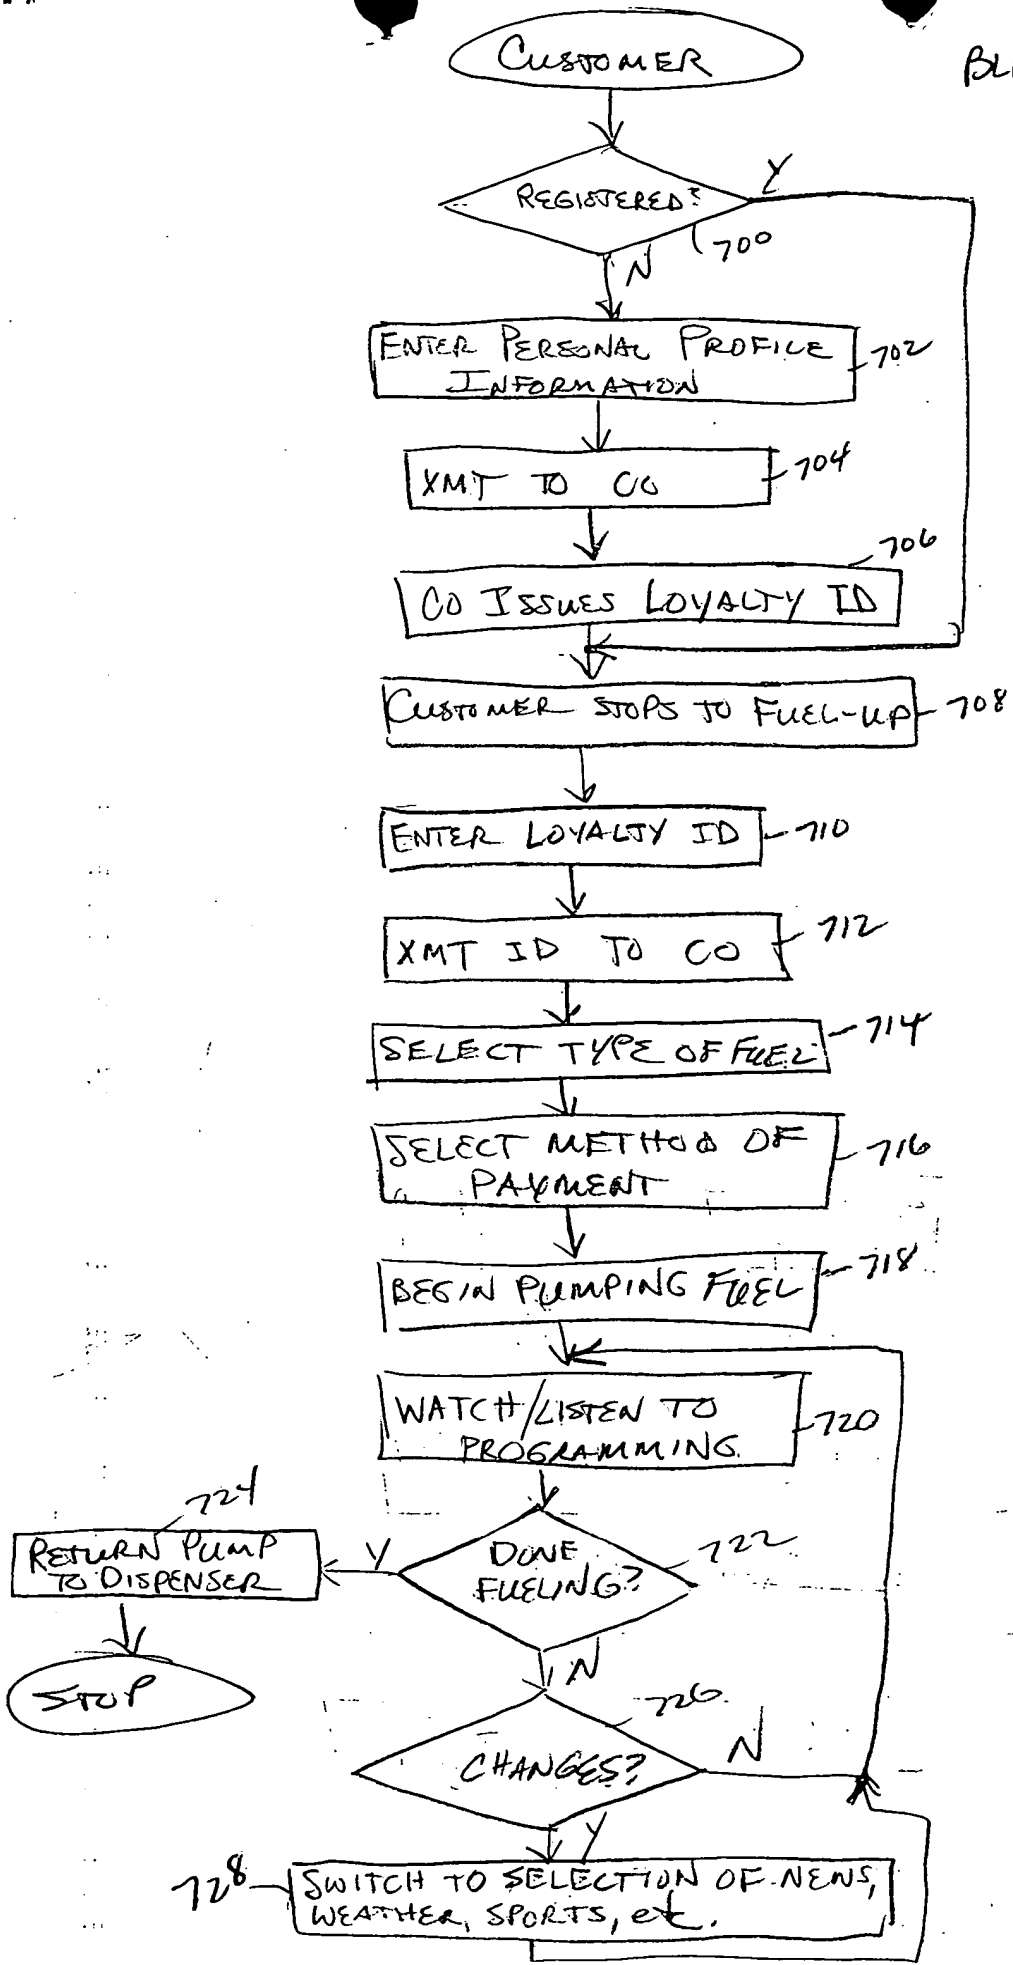 CUSTOMER
REGISTERED?
Y
700
N
ENTER PERSONAL PROFILE
INFORMATION
702
XMT TO CO
704
706
CO ISSUES LOYALTY ID
CUSTOMER STOPS TO FUEL-UP
708
ENTER LOYALTY ID
710
XMT ID TO CO
712
SELECT TYPE OF FUEL
714
SELECT METHOD OF
PAYMENT
716
BEGIN PUMPING FUEL
718
WATCH/LISTEN TO
PROGRAMMING
720
724
RETURN PUMP
TO DISPENSER
Y
DONE
FUELING?
722
STOP
N
726
CHANGES?
N
Y
728
SWITCH TO SELECTION OF NEWS,
WEATHER, SPORTS, etc.